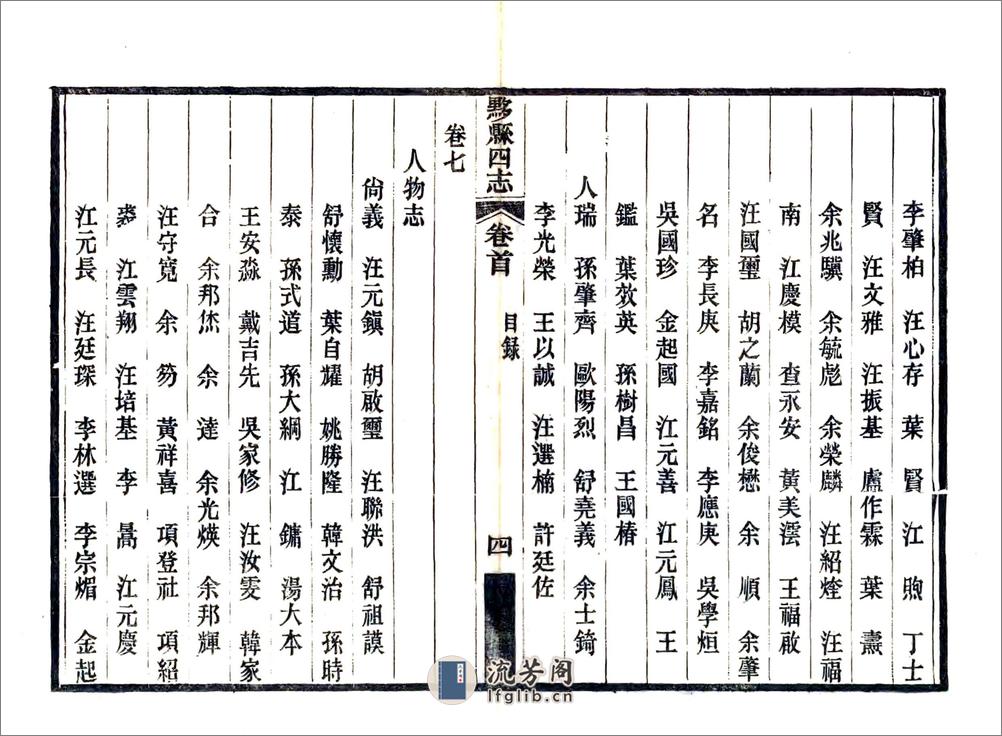 李肇柏　汪心存　葉　賢　江　煦　丁士
賢　汪文雅　汪振基　盧作霖　葉　燾
余兆驥　余毓彪　余榮麟　汪紹燈　汪福
南　江慶模　查永安　黃美澐　王福啟
汪國璽　胡之蘭　余俊懋　余　順　余肇
名　李長庚　李嘉銘　李應庚　吳學烜
吳國珍　金起國　江元善　江元鳳　王
鑑　葉效英　孫樹昌　王國椿
人瑞　孫肇齊　歐陽烈　舒堯義　余士錡
李光榮　王以誠　汪選楠　許廷佐
黟縣四志　卷首　目録　四
卷七
人物志
尙義　汪元鎭　胡啟璽　汪聯洪　舒祖謨
舒懷勳　葉自耀　姚勝隆　韓文治　孫時
泰　孫式道　孫大綱　江　鏞　湯大本
王安淼　戴吉先　吳家修　汪汝雯　韓家
合　余邦烋　余　達　余光煐　余邦輝
汪守寬　余　礽　黃祥喜　項登社　項紹
裘　江雲翔　汪培基　李　暠　江元慶
江元長　汪廷琛　李林選　李宗煝　金起
流芳阁
lfglib.cn